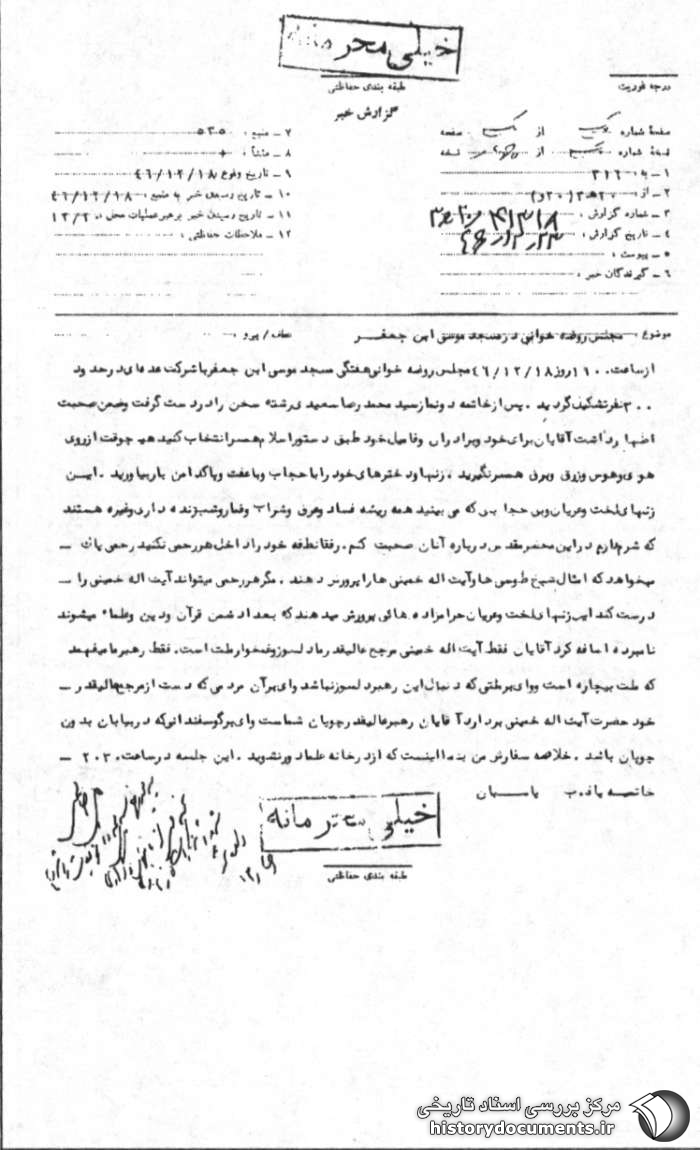 خیلی محرمانه
درجه فوریت
طبقه بندی حفاظتی
گزارش خبر
صفحهٔ شماره یک از یک صفحه
نسخهٔ شماره از نسخه
۱ ـ به : ۳۱۶
۲ ـ از : ۲۰ه۳ (۲۰و)
۳ ـ شماره گزارش :
۴ ـ تاریخ گزارش :
۵ ـ پیوست :
۶ ـ گیرندگان خبر :
۷ ـ منبع : ۵۳۵
۸ ـ منشأ :
۹ ـ تاریخ وقوع ۴۶/۱۲/۱۸
۱۰ ـ تاریخ رسیدن خبر به منبع : ۴۶/۱۲/۱۸
۱۱ ـ تاریخ رسیدن خبر برهبر عملیات محل
۱۲ ـ ملاحظات حفاظتی :
موضوع : مجلس روضه خوانی در مسجد موسی ابن جعفر
عطف / پیرو :
از ساعت روز ۴۶/۱۲/۱۸ مجلس روضه خوانی هفتگی مسجد موسی ابن جعفر با شرکت عده ای در حدود
۳۰۰ نفر تشکیل گردید . پس از خاتمه دو نماز سید محمد رضا سعیدی رشته سخن را در دست گرفت وضمن صحبت
اظهار داشت آقایان برای خود وبرادران وفامیل خود طبق دستور اسلام همسر انتخاب کنید هیچوقت از روی
هوی وهوس وزرق وبرق همسر نگیرید ، زنها و دخترهای خود را با حجاب وباعفت وپاکدامن باربیاورید . ایـن
زنهای لخت وعریان وبی حجابی که می بینید همه ریشه فساد وعرق وشراب وقمار وشب زنده داری وغیره هستند
که شرم دارم در این محضر مقدس درباره آنان صحبت کنم . رفقا نطفه خود را داخل هر رحمی نکنید رحمی پاک ـ
میخواهد که امثال شیخ طوسی ها وآیت اله خمینی ها را پرورش دهند . مگر هر رحمی میتواند آیت اله خمینی را ـ
درست کند این زنهای لخت وعریان حرامزاده هائی پرورش میدهند که بعداً دشمن قرآن ودین وعلماء میشوند
نامبرده اضافه کرد آقایان فقط آیت اله خمینی مرجع عالیقدر ما دلسوز وغمخوار ملت است . فقط رهبر ما میفهمد
که ملت بیچاره است ووای بر ملتی که دنبال این رهبر دلسوز نباشد وای بر آن مردمی که دست از مرجع عالیقدر ـ
خود حضرت آیت اله خمینی بردارد آقایان رهبر عالیقدر چوپان شماست وای بر گوسفندانی که در بیابان بدون
چوپان باشد . خلاصه سفارش من بشما اینست که از درخانه علما دور نشوید . این جلسه در ساعت ۲۰۳۰ ـ
خاتمه یافت پاسبان
خیلی محرمانه
طبقه بندی حفاظتی
مرکز بررسی اسناد تاریخی
historydocuments.ir